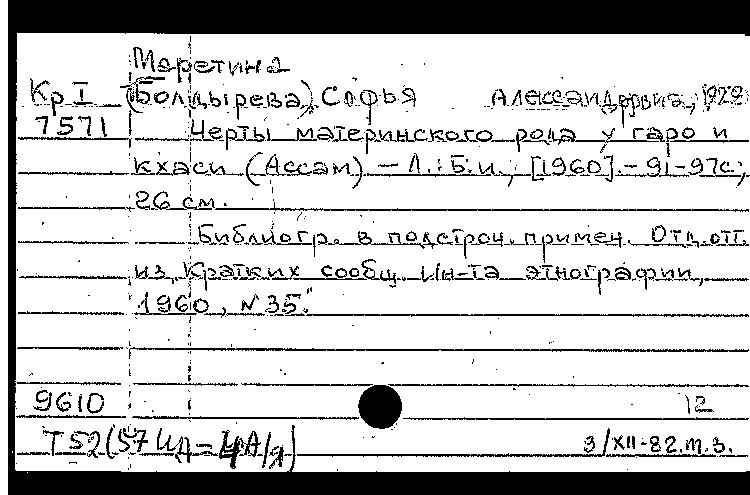 Маретина
Кр I (Болдырева), Софья Александровна, 1929
7571 Черты материнского рода у гаро и
кхаси (Ассам) — Л.: Б.и., [1960]. – 91–97с.;
26 см.
Библиогр. в подстроч. примеч. Отд. отт.
из „Кратких сообщ. Ин-та этнографии,
1960, № 35."
9610 12
Т 52(57 Ид = 3/XII-82.т.з.